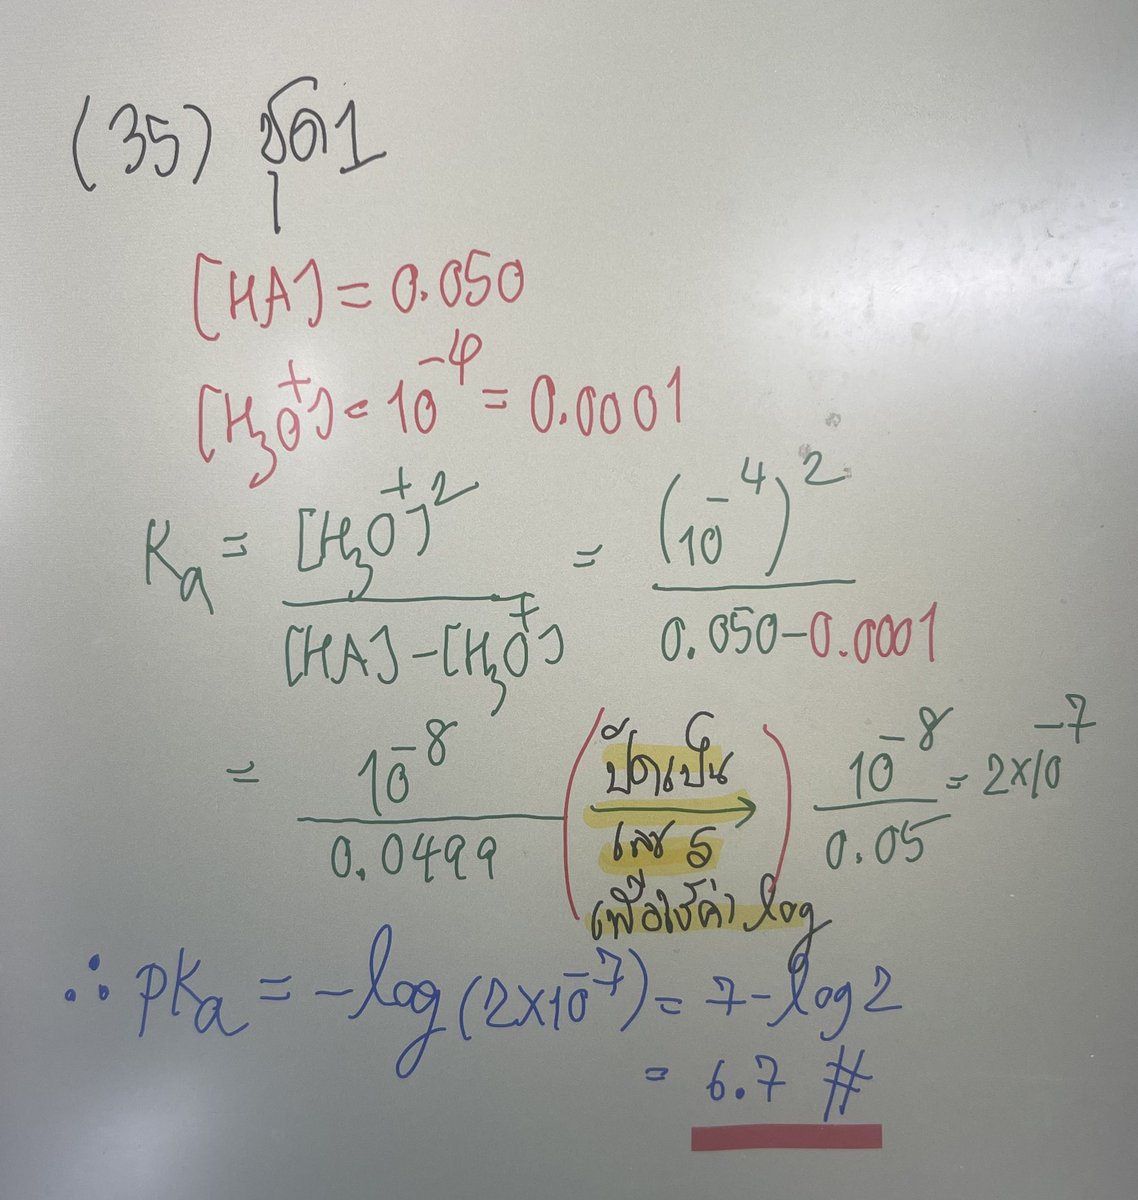 (35) ชุด1
[HA] = 0.050
[H₃O⁺] = 10⁻⁴ = 0.0001
Kₐ = [H₃O⁺]² / [HA] - [H₃O⁺] = (10⁻⁴)² / 0.050-0.0001
= 10⁻⁸ / 0.0499 (ปัดเป็น → เลข 5 เพื่อใช้ค่า log) 10⁻⁸ / 0.05 = 2×10⁻⁷
∴ pKₐ = -log(2×10⁻⁷) = 7 - log 2
= 6.7 #